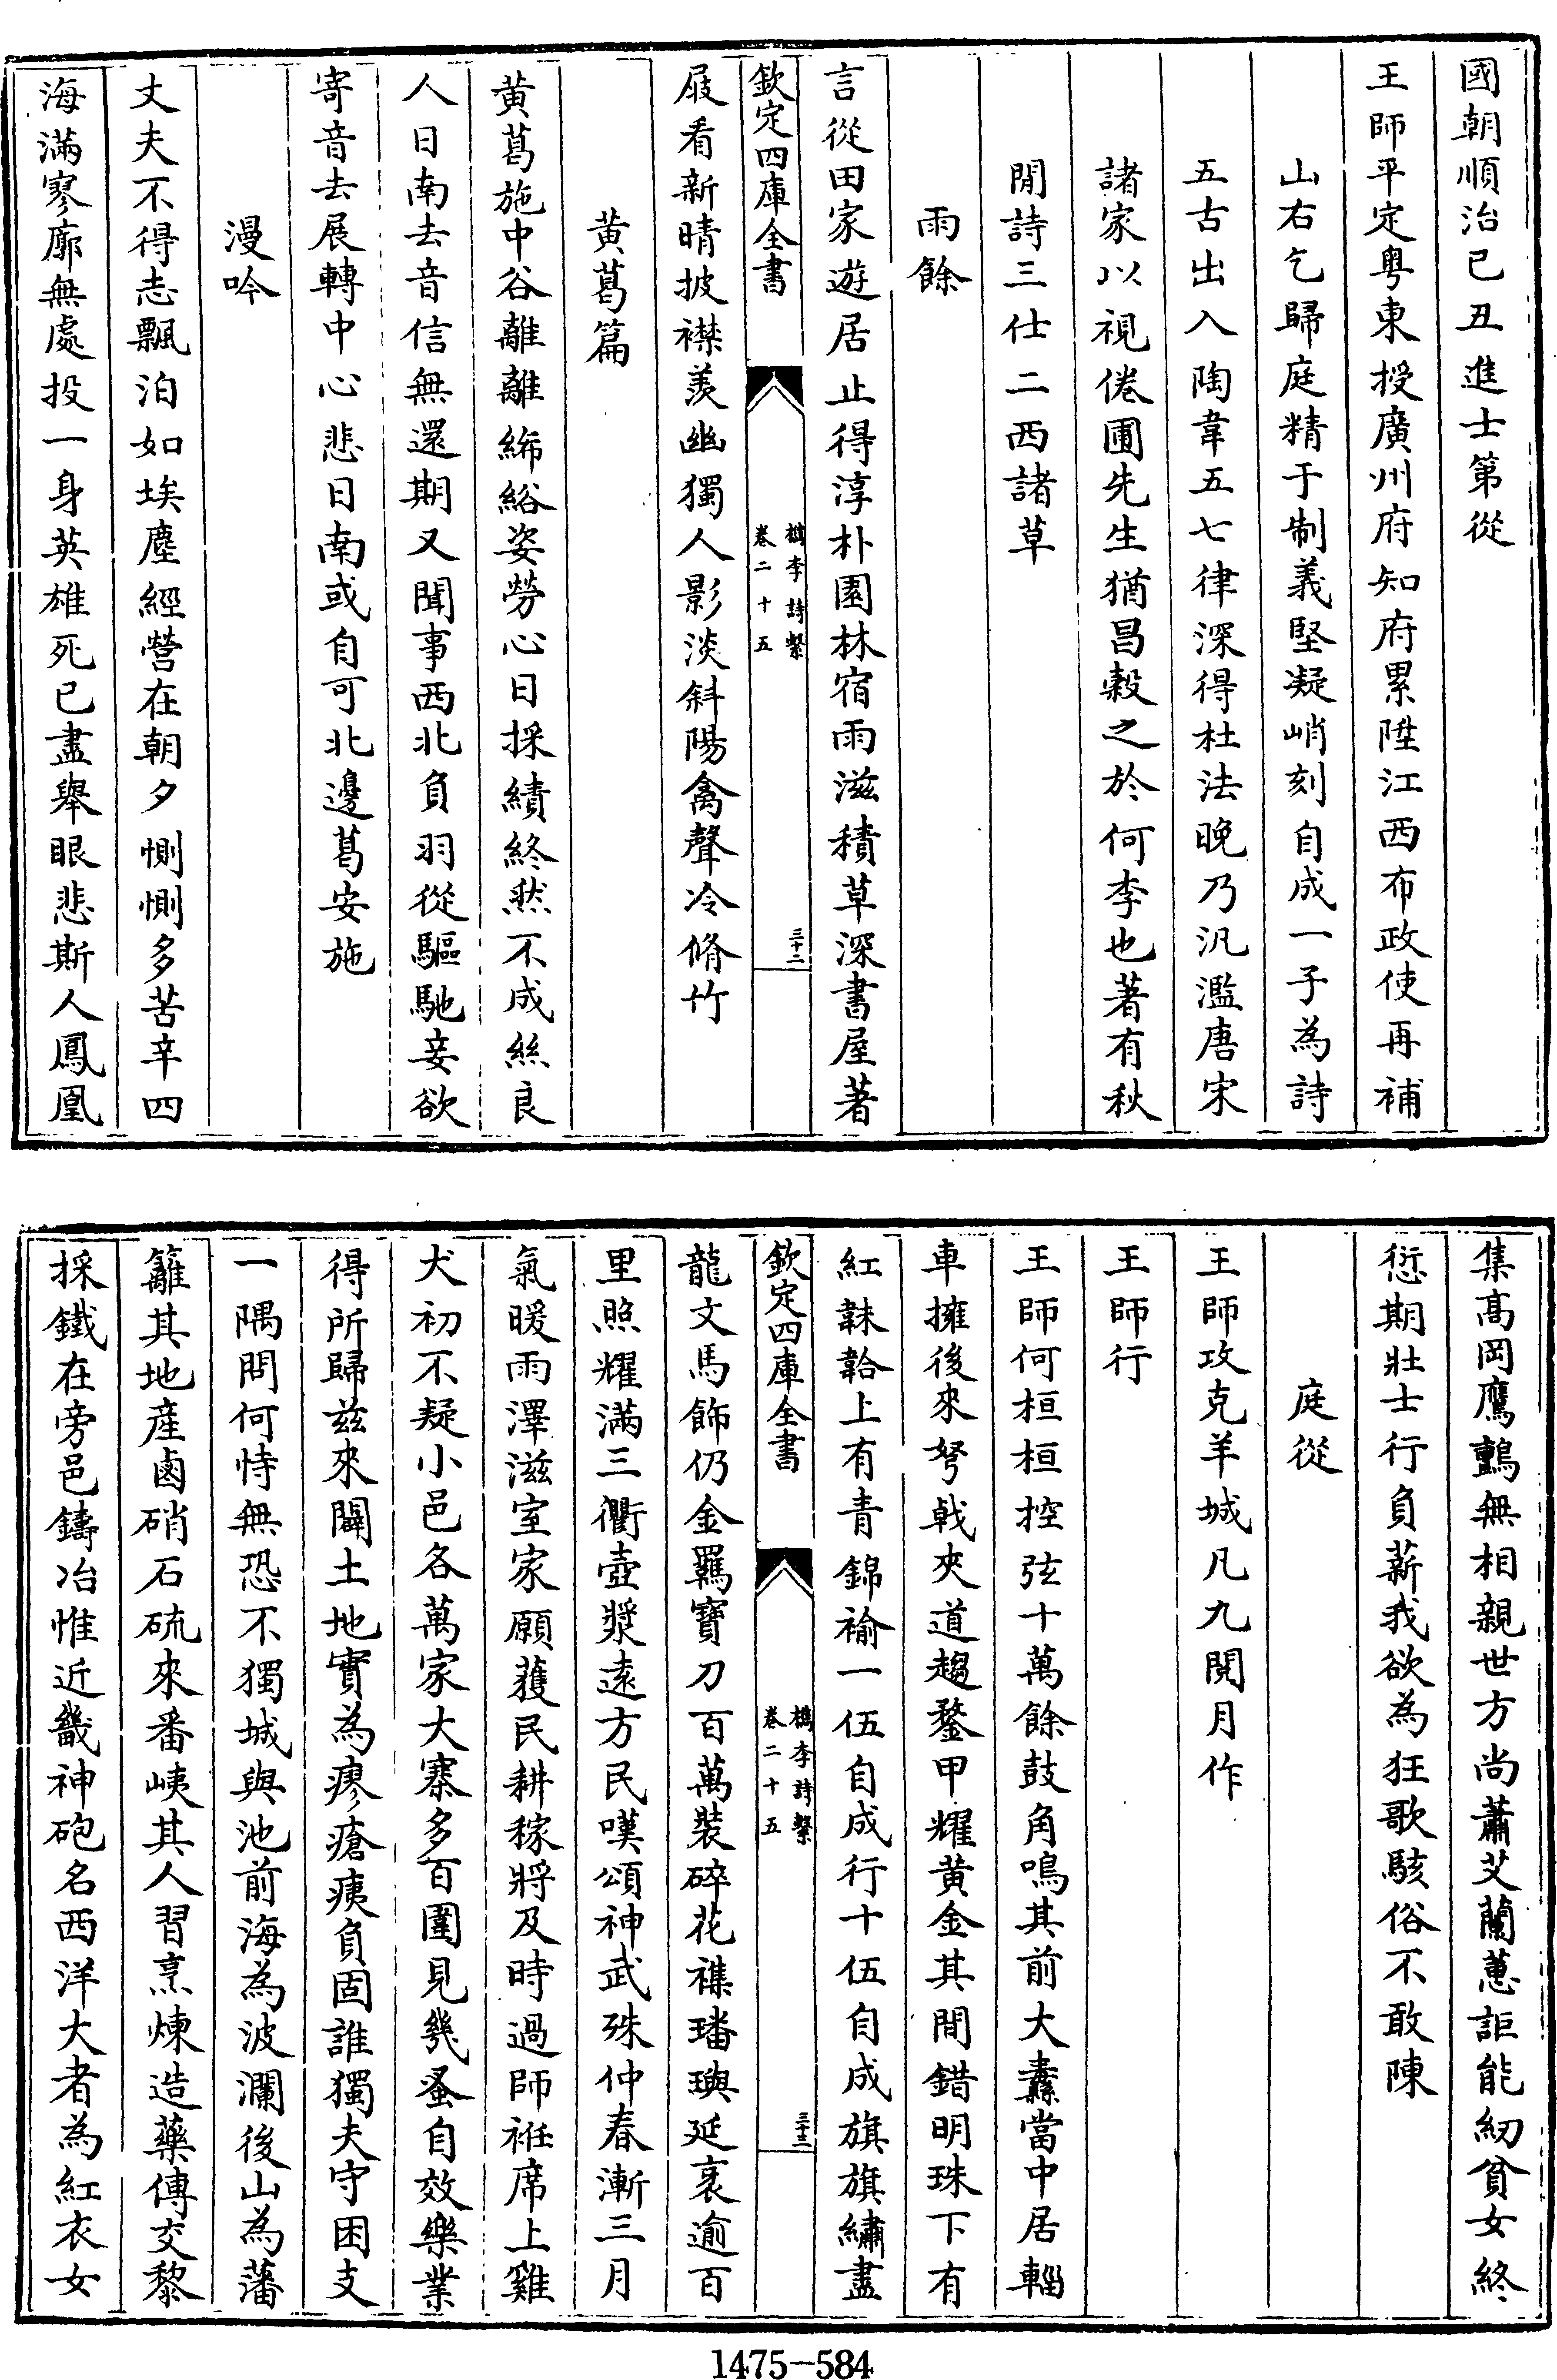 國朝順治己丑進士第從
王師平定粤東授廣州府知府累陞江西布政使再補
山右乞歸庭精于制義堅凝峭刻自成一子為詩
五古出入陶韋五七律深得杜法晚乃汎濫唐宋
諸家以視倦圃先生猶昌榖之於何李也著有秋
閒詩三仕二西諸草
雨餘
言從田家遊居止得淳朴園林宿雨滋積草深書屋著
欽定四庫全書
檇李詩繫
卷二十五
三十二
屐看新晴披襟羨幽獨人影淡斜陽禽聲冷脩竹
黄葛篇
黄葛施中谷離離絺綌姿勞心日採績終然不成絲良
人日南去音信無還期又聞事西北負羽從驅馳妾欲
寄音去展轉中心悲日南或自可北邊葛安施
漫吟
丈夫不得志飄泊如埃塵經營在朝夕惻惻多苦辛四
海滿寥廓無處投一身英雄死已盡舉眼悲斯人鳳凰
集髙岡鷹鸇無相親世方尚蕭艾蘭蕙詎能紉貧女終
愆期壯士行負薪我欲為狂歌駭俗不敢陳
庭從
王師攻克羊城凡九閱月作
王師行
王師何桓桓控弦十萬餘鼓角鳴其前大纛當中居輜
車擁後來弩戟夾道趨鍪甲耀黄金其間錯明珠下有
紅韎韐上有青錦褕一伍自成行十伍自成旗旗繡盡
欽定四庫全書
檇李詩繫
卷二十五
三十三
龍文馬飾仍金羈寶刀百萬裝碎花襍璠璵延袤逾百
里照耀滿三衢壺漿逺方民嘆頌神武殊仲春漸三月
氣暖雨澤滋室家願獲民耕稼將及時過師袵席上雞
犬初不疑小邑各萬家大寨多百圍見幾蚤自效樂業
得所歸兹來闢土地實為瘳瘡痍負固誰獨夫守困支
一隅問何恃無恐不獨城與池前海為波瀾後山為藩
籬其地産鹵硝石硫來番峓其人習烹煉造藥傳交黎
採鐵在旁邑鑄冶惟近畿神砲名西洋大者為紅衣女
1475-584